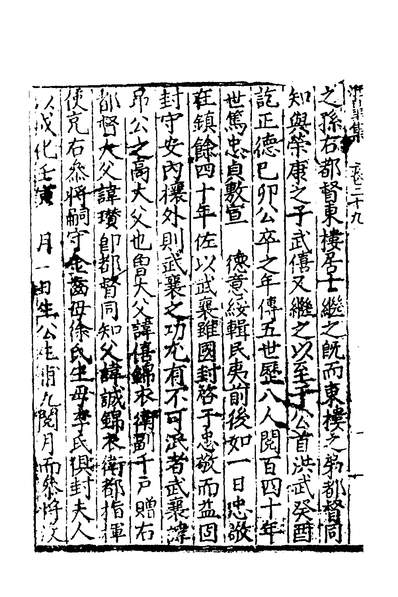 之孫右都督東樓居士繼之既而東樓之弟都督同
知與榮康之子武僖又繼之以至于公首洪武癸酉
訖正德己卯公卒之年傳五世歷八人閱百四十年
世篤忠貞敷宣 德意綏輯民夷前後如一日忠敬
在鎮餘四十年佐以武襄雖國封啓于忠敬而益固
封守安內攘外則武襄之功尤有不可泯者武襄諱
昂公之高大父也曾大父諱僖錦衣衛副千戶贈右
都督大父諱瓚即都督同知父諱誠錦衣衛都指揮
使充右參將嗣守金齒母徐氏生母李氏俱封夫人
以成化壬寅 月一日生公生甫九閱月而參將公